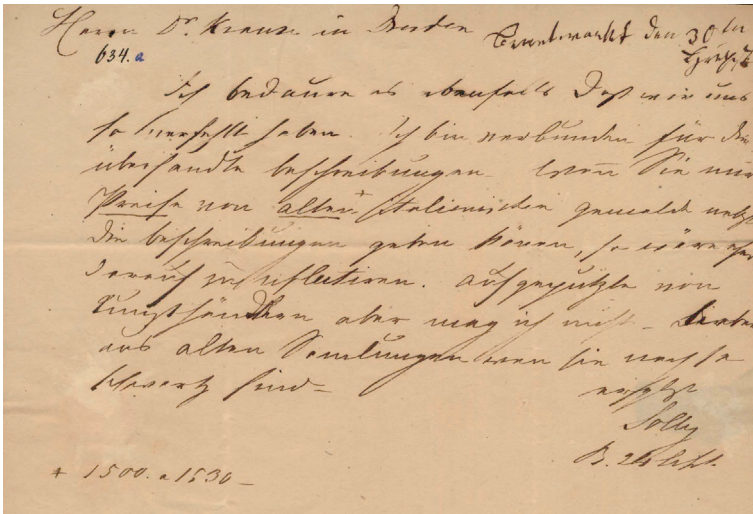 Herrn Dr. Krause in Dresden den 30ten
634.a
Ich bedaure es ebenfalls daß wir uns
so verfehlt haben. Ich bin verbunden für die
übersandte beschreibungen. Wenn Sie mir
Preise von alten + Italienischen gemälde nebst
die beschreibungen geben können, so wäre eher
darauf zu reflectiren. Aufgeputzte von
Kunsthändlern aber mag ich nicht - Lieber
aus alten Samlungen wen sie noch so
schwartz sind -
Solly
B. 24
+ 1500. a 1530 -